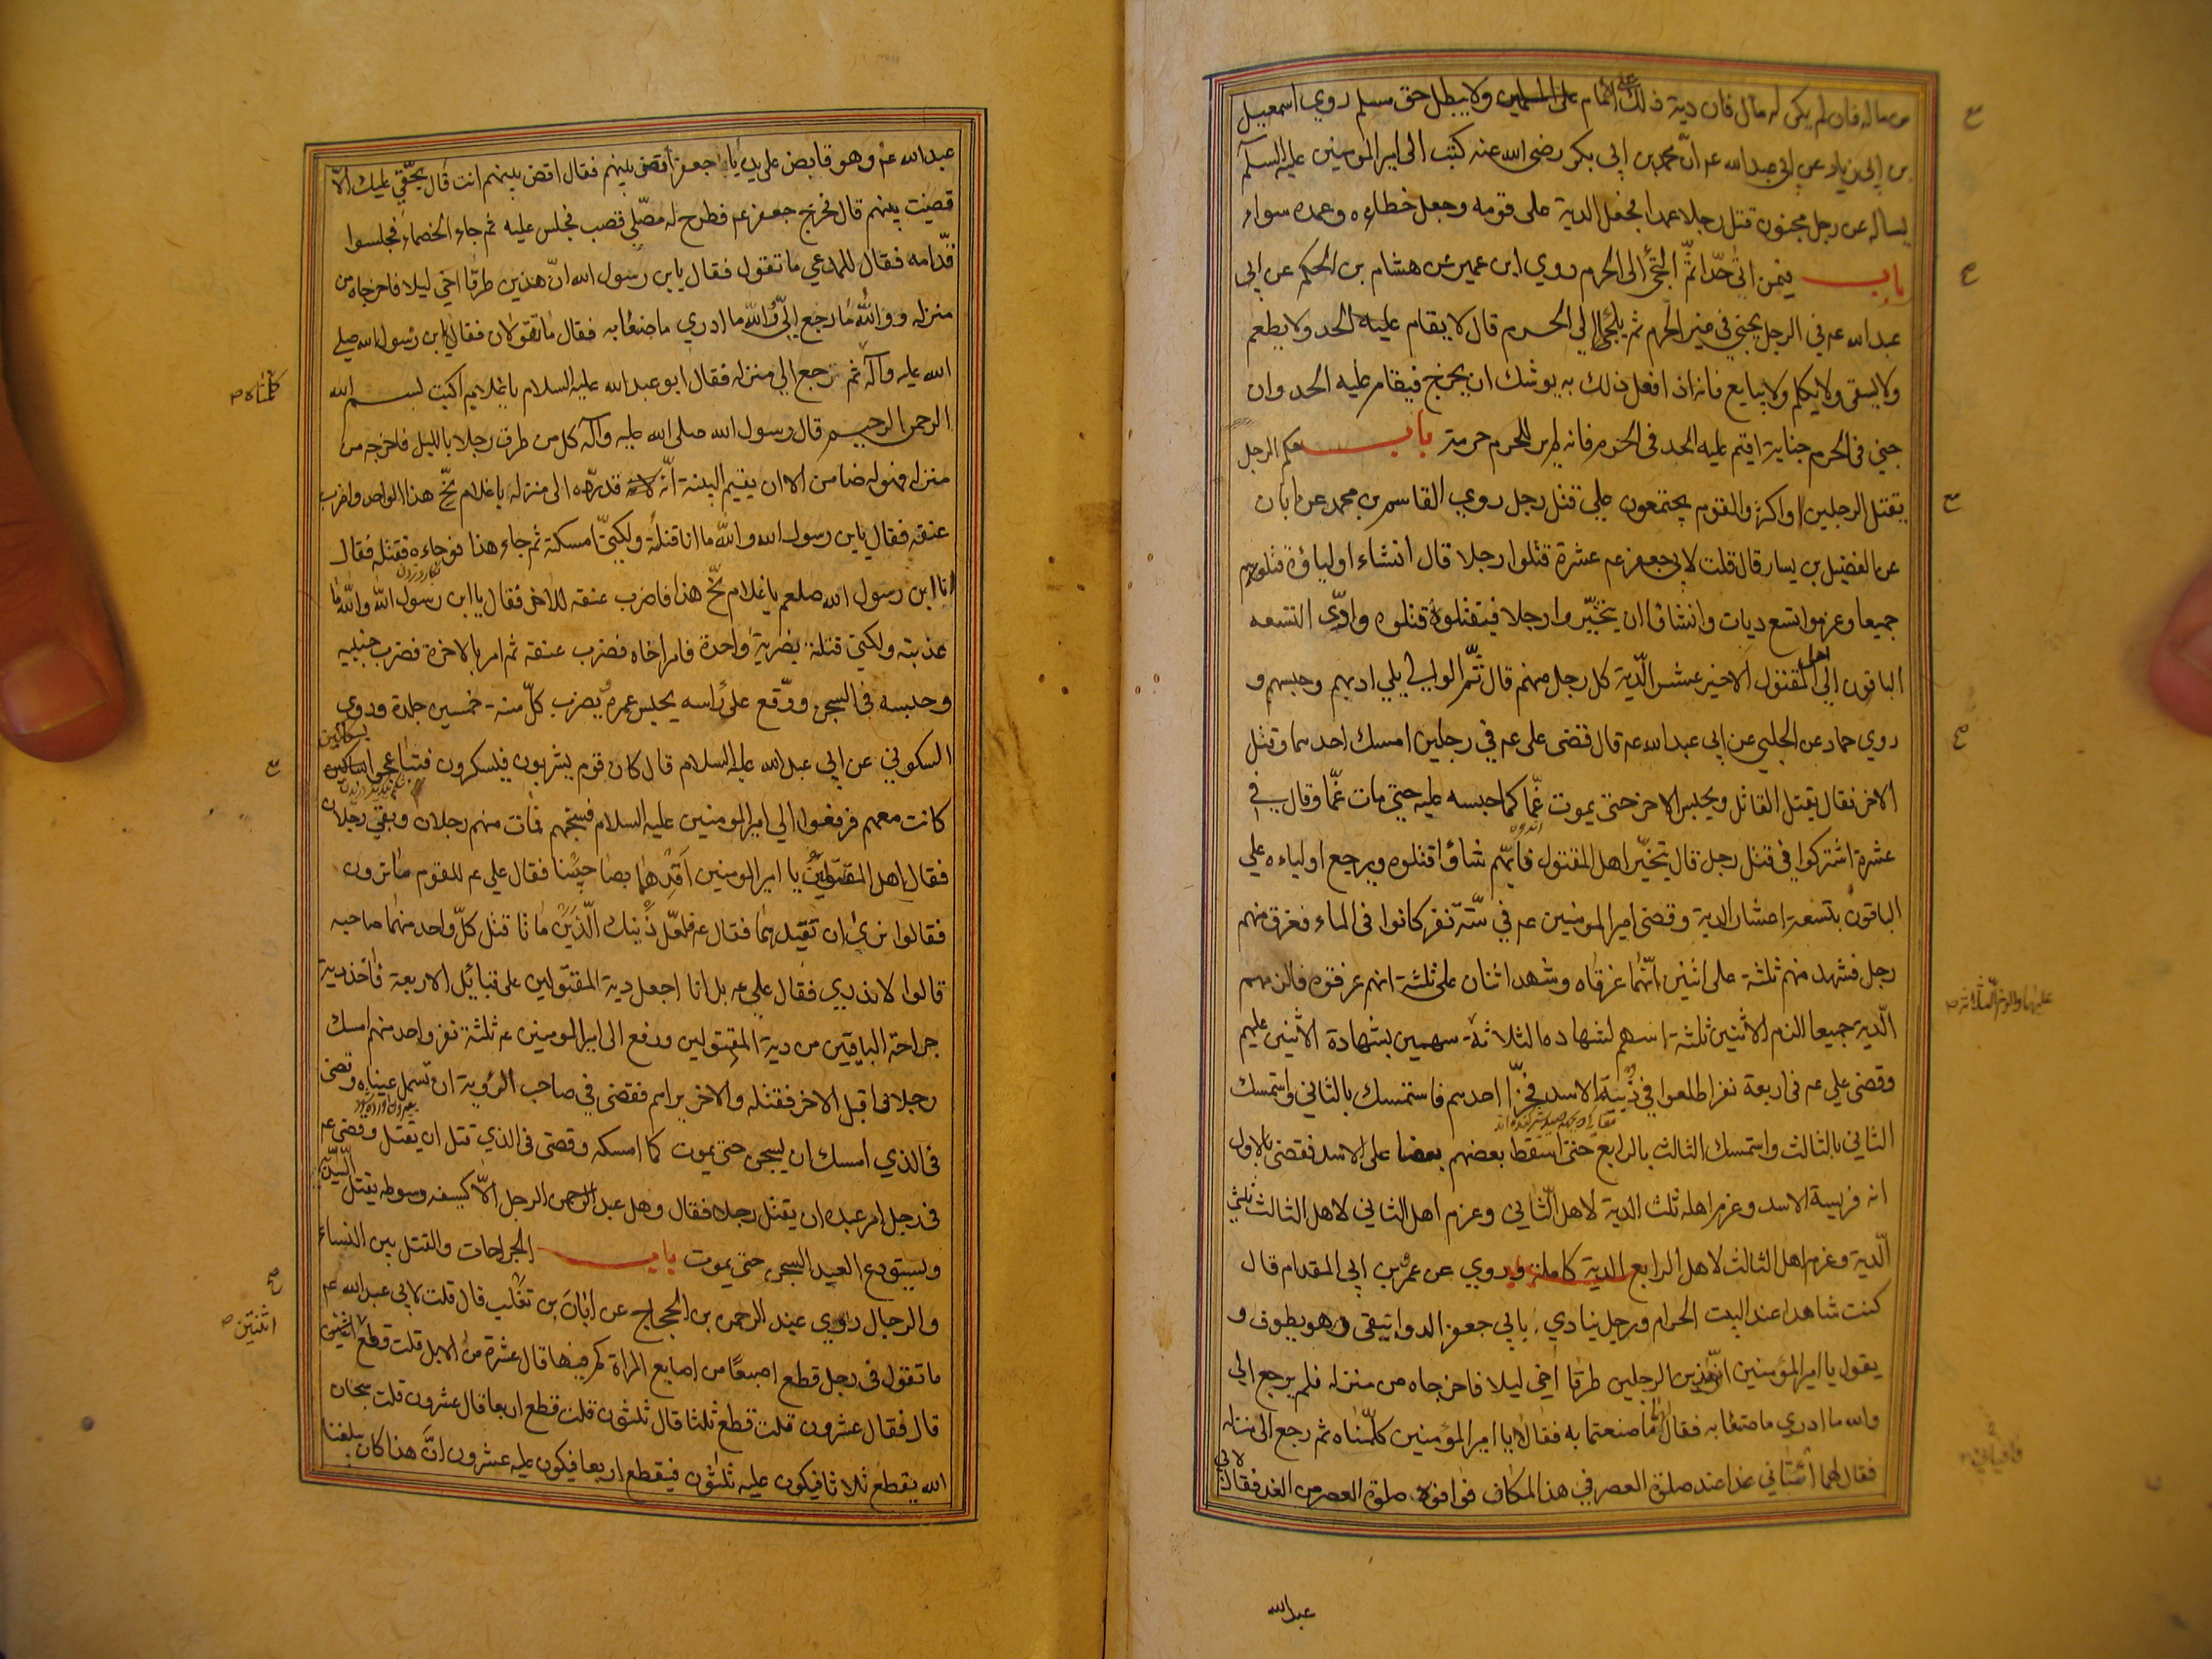 من ماله فان لم يكن له مال فان دية ذلك على الامام ولا يبطل حق مسلم روي اسمعيل
بن ابي زياد عن ابي عبدالله عم انّ محمد بن ابي بكر رضى الله عنه كتب الى امير المومنين عليه السلام
يساله عن رجل مجنون قتل رجلا عمدا فجعل الدية على قومه وجعل خطاءه وعمده سواء
باب فيمن اتى حدّا ثمّ التجئ الى الحرم روي ابن عمير عن هشام بن الحكم عن ابي
عبدالله عم في الرجل يجني في غير الحرم ثم يلجئ الى الحرم قال لا يقام عليه الحد ولا يطعم
ولا يسقى ولا يكلم ولا يبايع فانه اذا فعل ذلك به يوشك ان يخرج فيقام عليه الحد وان
جنى في الحرم جناية اقيم عليه الحد في الحرم فانه لم ير للحرم حرمة باب حكم الرجل
يقتل الرجلين او اكثر والقوم يجتمعون على قتل رجل روي القاسم بن محمد عن ابان
عن الفضيل بن يسار قال قلت لابي جعفر عم عشرة قتلوا رجلا قال انشاء اولياؤه قتلوهم
جميعا وغرموا تسع ديات وانشاؤا ان يتخيّروا رجلا فيقتلوه قتلوه وادّى التسعه
الباقون الى اهل المقتول الاخير عشر الدّية كل رجل منهم قال ثمّ الوالي يلي ادبهم وحبسهم و
روي حماد عن الحلبي عن ابي عبدالله عم قال قضى على عم في رجلين امسك احدهما وقتل
الاخر فقال يقتل القاتل ويحبس الاخر حتى يموت غمّا كما حبسه عليه حتى مات غمّا وقال في
عشرة اشتركوا في قتل رجل قال يتخيّر اهل المقتول فايّهم شاؤا قتلوه ويرجع اولياءه على
الباقون بتسعة اعشار الدية وقضى امير المومنين عم في ستّة نفر كانوا في الماء فغرق منهم
رجل فشهد منهم ثلثة على اثنين انّهما غرقاه وشهد اثنان على ثلثة انهم غرقوه فالزمهم
الدّية جميعا الزم الاثنين ثلثة اسهم لشهادة الثلاثة سهمين بشهادة الاثنين عليهم
وقضى علي عم في اربعة نفر اطلعوا في زبية الاسد فخرّ احدهم فاستمسك بالثاني واستمسك
الثاني بالثالث واستمسك الثالث بالرابع حتى اسقط بعضهم بعضا على الاسد فقضى بالاول
انه فريسة الاسد وغرم اهله ثلث الدية لاهل الثّاني وغرم اهل الثاني لاهل الثالث ثلثي
الدّية وغرم اهل الثالث لاهل الرابع الدية كاملة وروي عن عمرو بن ابي المقدام قال
كنت شاهدا عند البيت الحرام ورجل ينادي بابي جعفر الدوانيقى وهو يطوف و
يقول يا امير المؤمنين انّ هذين الرجلين طرقا اخي ليلا فاخرجاه من منزله فلم يرجع الي
والله ما ادري ما صنعا به فقال لهما ما صنعتما به فقالا يا امير المؤمنين كلّمناه ثم رجع الى منزله
فقال لهما ائتياني غدا عند صلوة العصر في هذا المكان فوافوه صلوة العصر من الغد فقال لابي
عبدالله
عبدالله عم وهو قابض على يده يا جعفر اقض بينهم فقال اقض بينهم انت قال بحقّي عليك الّا
قضيت بينهم قال فخرج جعفر عم فطرح له مصلّى قصب فجلس عليه ثم جاء الخصماء فجلسوا
قدّامه فقال للمدعي ما تقول فقال يا بن رسول الله انّ هذين طرقا اخي ليلا فاخرجاه من
منزله ووالله ما رجع اليّ والله ما ادري ما صنعا به فقال ما تقولان فقالا يا بن رسول الله صلى
الله عليه وآله ثم رجع الى منزله فقال ابو عبدالله عليه السلام يا غلام اكتب بسم الله
كلّمناه
الرحمن الرحيم قال رسول الله صلى الله عليه وآله كل من طرق رجلا بالليل فاخرجه من
منزله فهو له ضامن الا ان يقيم البينة انّه قد ردّه الى منزله يا غلام نحّ هذا الواحد واضرب
عنقه فقال يا بن رسول الله والله ما انا قتلته ولكنّي امسكته ثم جاء هذا فوجاءه فقتله فقال
انا ابن رسول الله صلعم يا غلام نحّ هذا فاضرب عنقه للاخر فقال يا ابن رسول الله والله ما
عذبته ولكني قتلته بضربة واحدة فامر اخاه فضرب عنقه ثم امر بالاخر فضرب جنبيه
وحبسه في السجن ووقّع على راسه يحبس عمره ويضرب كلّ سنة خمسين جلدة وروي
السكوني عن ابي عبد الله عليه السلام قال كان قوم يشربون فيسكرون فتباعجوا بسكاكين
كانت معهم فرفعوا الى امير المومنين عليه السلام فسجنهم فمات منهم رجلان وبقي رجلان
فقال اهل المقتولين يا امير المومنين اقدهما بصاحبينا فقال علي عم للقوم ما ترون
فقالوا نرى ان تقيدهما فقال عم فلعلّ ذينك الّذين ماتا قتل كلّ واحد منهما صاحبه
قالوا لا ندري فقال علي عم بل انا اجعل دية المقتولين على قبائل الاربعة فاخذ دية
جراحة الباقيين من دية المقتولين ورفع الى امير المومنين عم ثلثة نفر واحد منهم امسك
رجلا واقبل الاخر فقتله والاخر يراهم فقضى في صاحب الرؤية ان تسمل عيناه وقضى
في الذي امسك ان يسجن حتى يموت كما امسكه وقضى في الذي قتل ان يقتل وقضى عم
في رجل امر عبده ان يقتل رجلا فقال وهل عبد الرجل الّا كسيفه وسوطه يقتل السّيّد
ويستودع العبد السجن حتى يموت باب الجراحات والقتل بين النساء
والرجال روي عبد الرحمن بن الحجاج عن ابان بن تغلب قال قلت لابي عبدالله عم
ما تقول في رجل قطع اصبعًا من اصابع المراة كم فيها قال عشرة من الابل قلت قطع اثنين
اثنتين
قال فقال عشرون قلت قطع ثلثا قال ثلثون قلت قطع اربعا قال عشرون قلت سبحان
الله يقطع ثلاثا فيكون عليه ثلثون فيقطع اربعا فيكون عليه عشرون انّ هذا كان يبلغنا